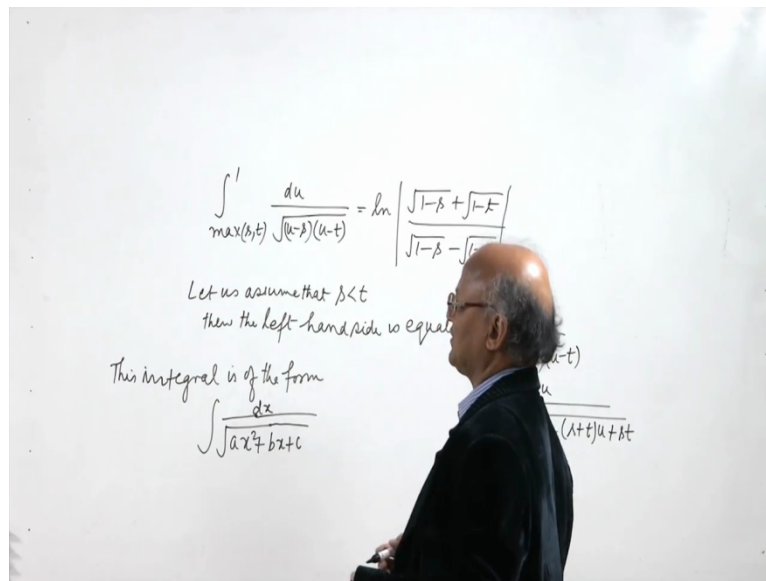 ∫_{max(s,t)}^{1} du / √((u-s)(u-t)) = ln | (√(1-s) + √(1-t)) / (√(1-s) - √(1-
Let us assume that s<t
then the left hand side is equal
(u-t)
This integral is of the form
u
∫ dx / √(ax²+bx+c)
- (s+t)u+st